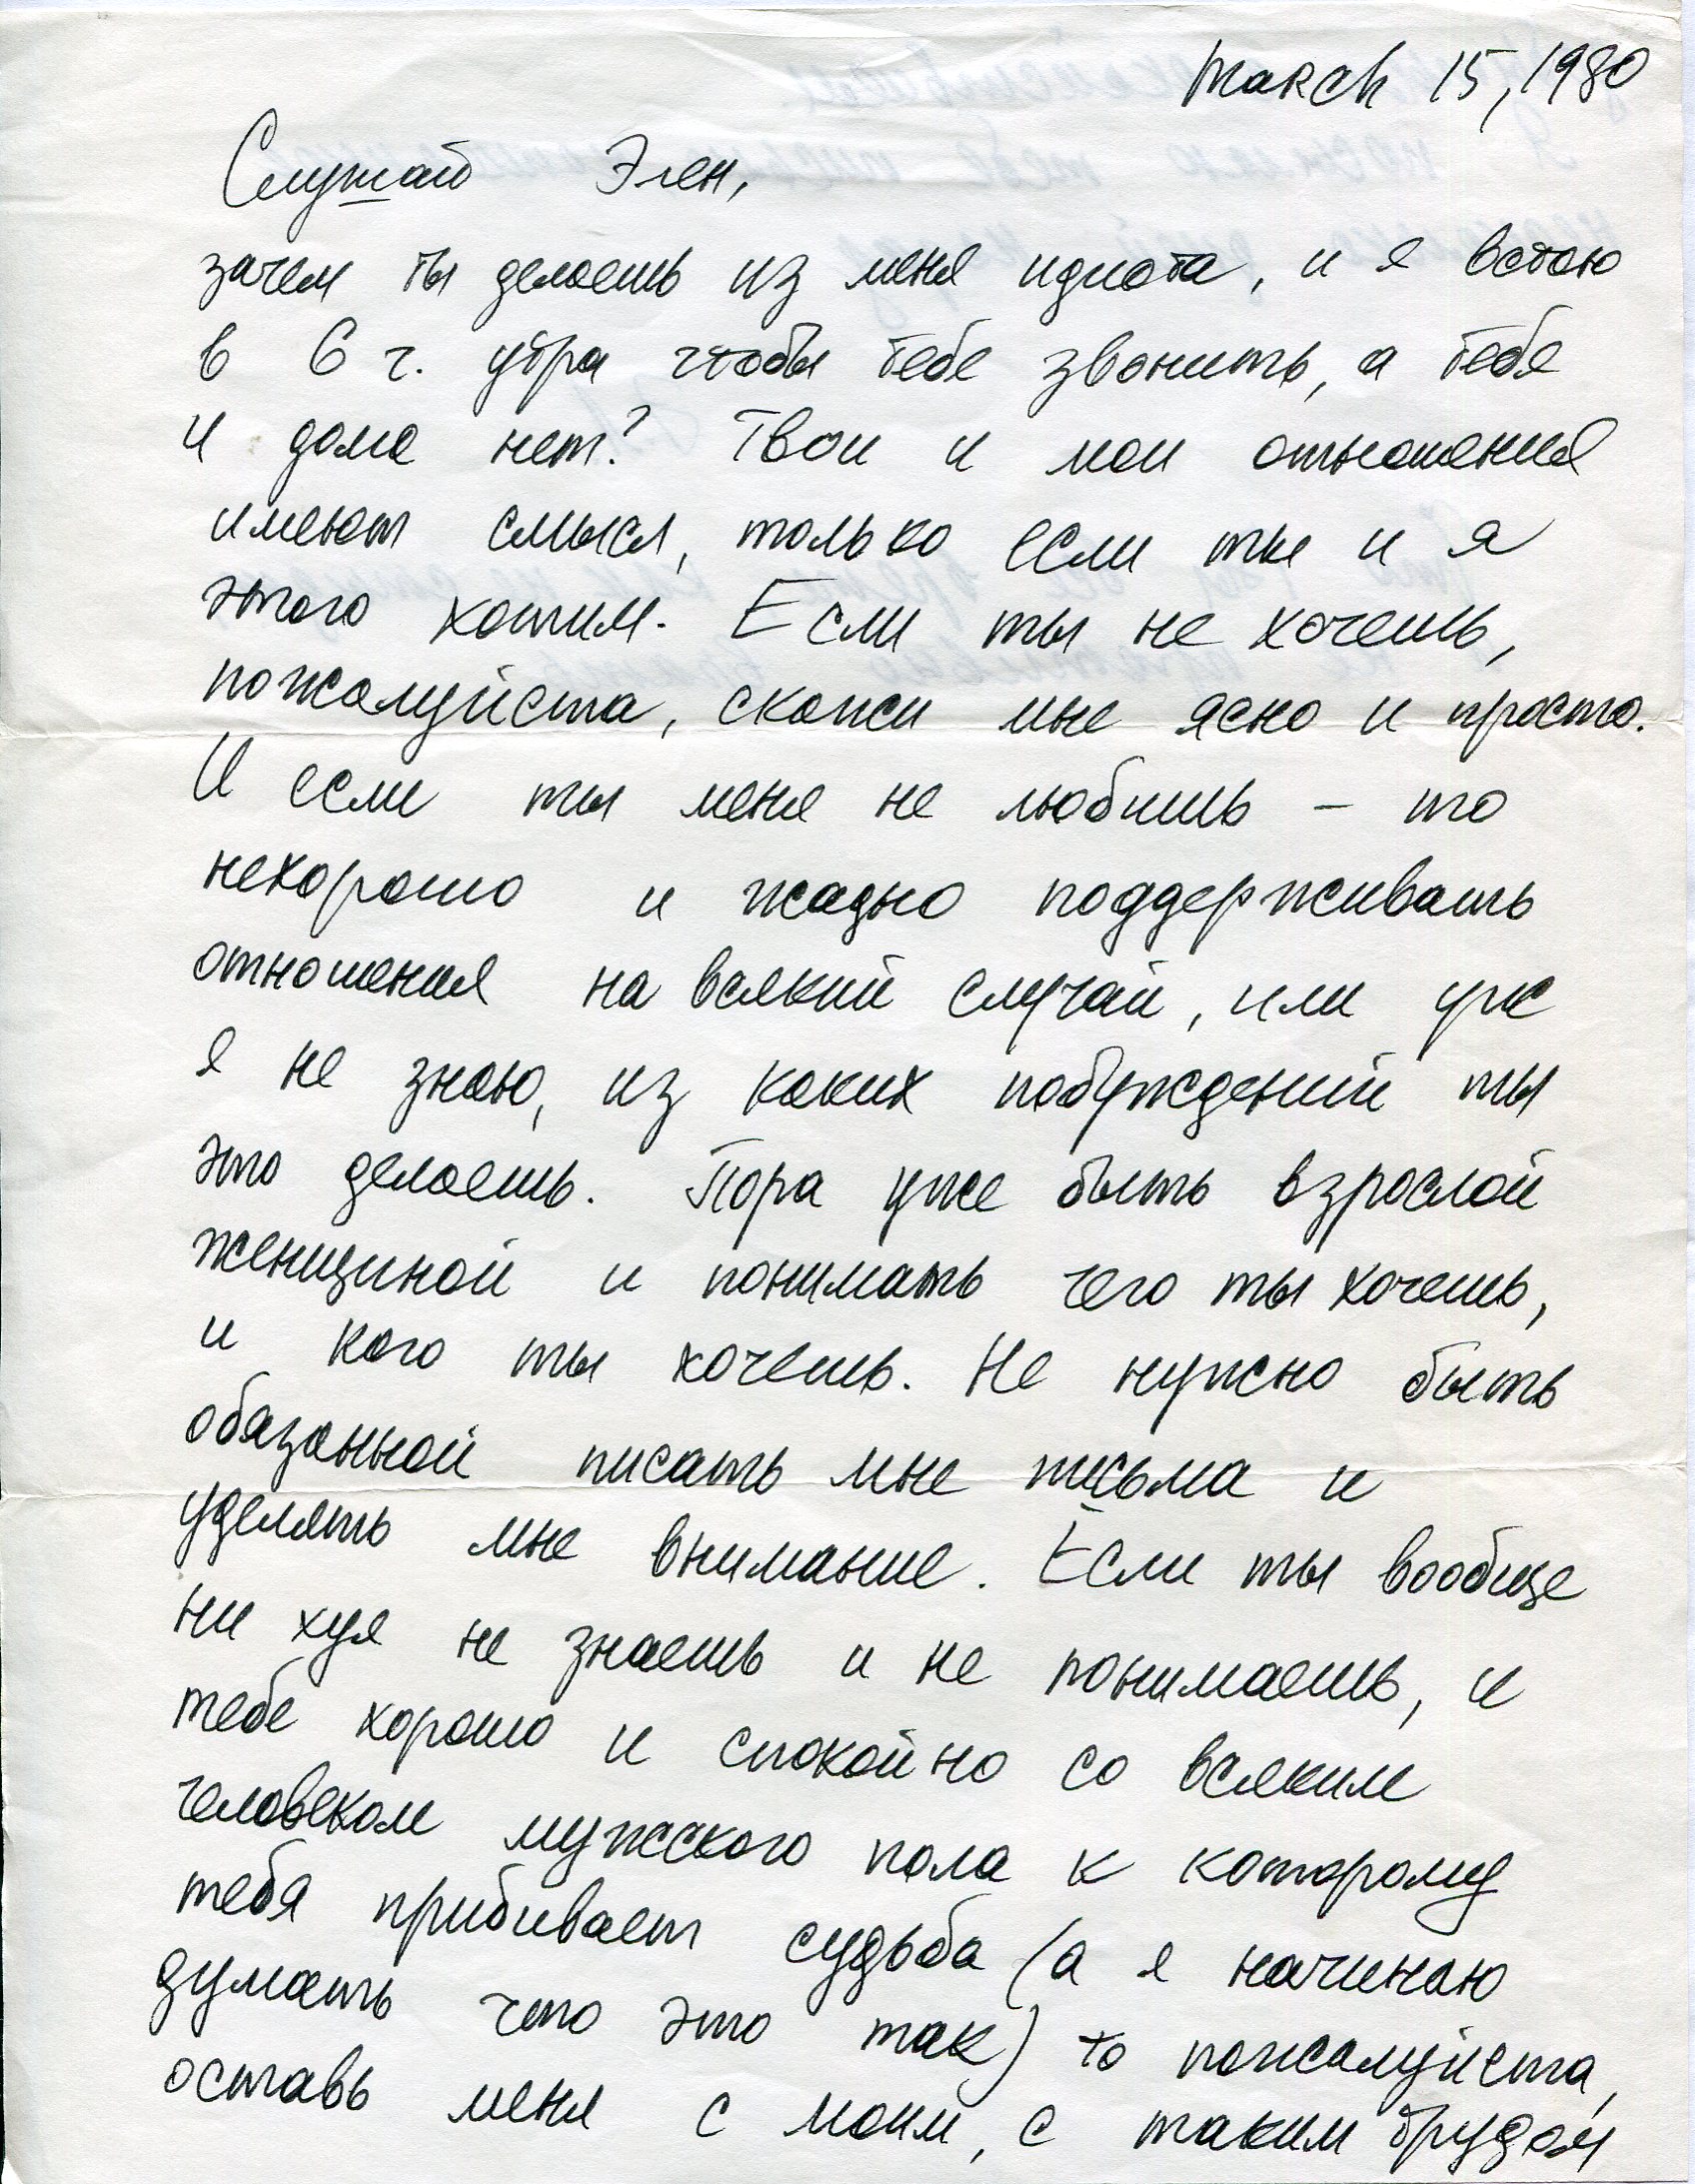 March 15, 1980
Слушай Элен,
зачем ты делаешь из меня идиота, и я встаю
в 6 ч. утра чтобы тебе звонить, а тебя
и дома нет? Твои и мои отношения
имеют смысл, только если ты и я
этого хотим. Если ты не хочешь,
пожалуйста, скажи мне ясно и просто.
И если ты меня не любишь – то
нехорошо и жадно поддерживать
отношения на всякий случай, или уж
я не знаю, из каких побуждений ты
это делаешь. Пора уже быть взрослой
женщиной и понимать чего ты хочешь,
и кого ты хочешь. Не нужно быть
обязанной писать мне письма и
уделять мне внимание. Если ты вообще
ни хуя не знаешь и не понимаешь, и
тебе хорошо и спокойно со всяким
человеком мужского пола к которому
тебя прибивает судьба (а я начинаю
думать что это так) то пожалуйста,
оставь меня с моим, с таким трудом